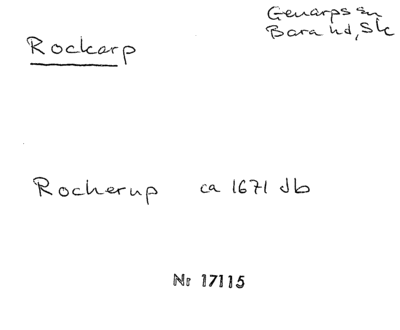 Rockarp
Genarps sn
Bara hd, Sk
Rockerup ca 1671 Jb
Nr 17115